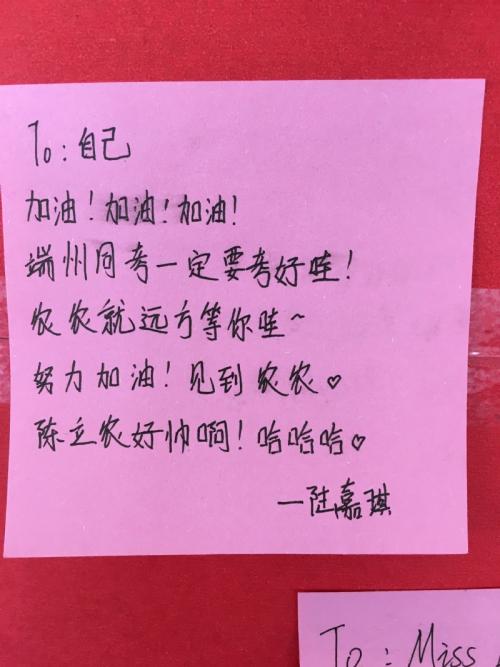 To：自己
加油！加油！加油！
端州同考一定要考好哇！
农农就远方等你哇~
努力加油！见到农农♥
陈立农好帅啊！哈哈哈♡
一陆嘉琪
To：Miss